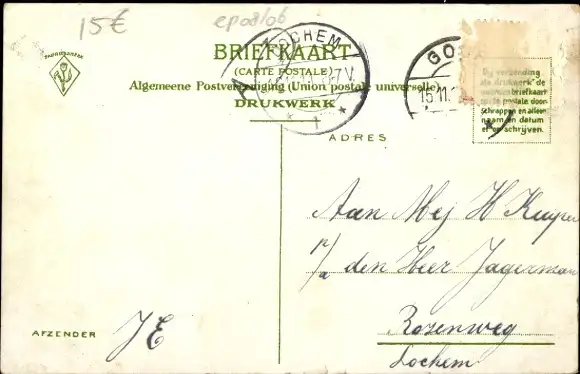 15€
epo8106
LOCHEM
BRIEFKAART
(CARTE POSTALE)
Algemeene Postvereeniging (Union postale universelle)
DRUKWERK
GO
15.11.
Bij verzending
als drukwerk de
briefkaart
postale door-
schrappen en alleen
naam en datum
schrijven.
ADRES
Aan Mej H Kuyper
p/a den Heer Jagerman
Rozenweg
Lochem
AFZENDER
JE